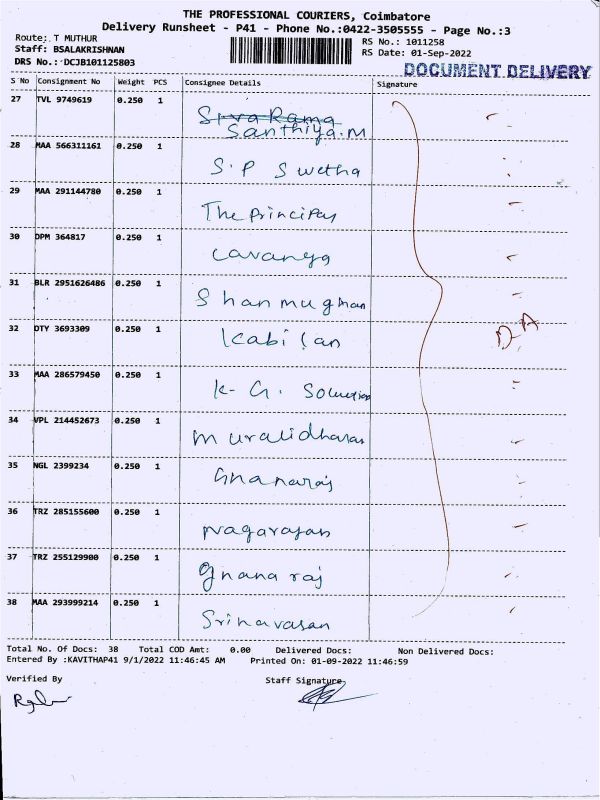 THE PROFESSIONAL COURIERS, Coimbatore
Delivery Runsheet - P41 - Phone No.:0422-3505555 - Page No.:3
Route: T MUTHUR
RS No.: 1011258
Staff: BSALAKRISHNAN
RS Date: 01-Sep-2022
DRS No.: DCJB101125803
DOCUMENT DELIVERY
S No Consignment No Weight PCS Consignee Details Signature
27 TVL 9749619 0.250 1 Siva Rama
Santhiya.M
28 MAA 566311161 0.250 1 S.P Swetha
29 MAA 291144780 0.250 1 The Principal
30 DPM 364817 0.250 1 Lavanya
31 BLR 2951626486 0.250 1 Shanmughan
32 DTY 3693309 0.250 1 Kabilan D-A
33 MAA 286579450 0.250 1 K-G. Solution
34 VPL 214452673 0.250 1 Muralidharan
35 NGL 2399234 0.250 1 Gnanaraj
36 TRZ 285155600 0.250 1 Nagarajan
37 TRZ 255129900 0.250 1 Gnanaraj
38 MAA 293999214 0.250 1 Srinavasan
Total No. Of Docs: 38 Total COD Amt: 0.00 Delivered Docs: Non Delivered Docs:
Entered By :KAVITHAP41 9/1/2022 11:46:45 AM Printed On: 01-09-2022 11:46:59
Verified By Staff Signature